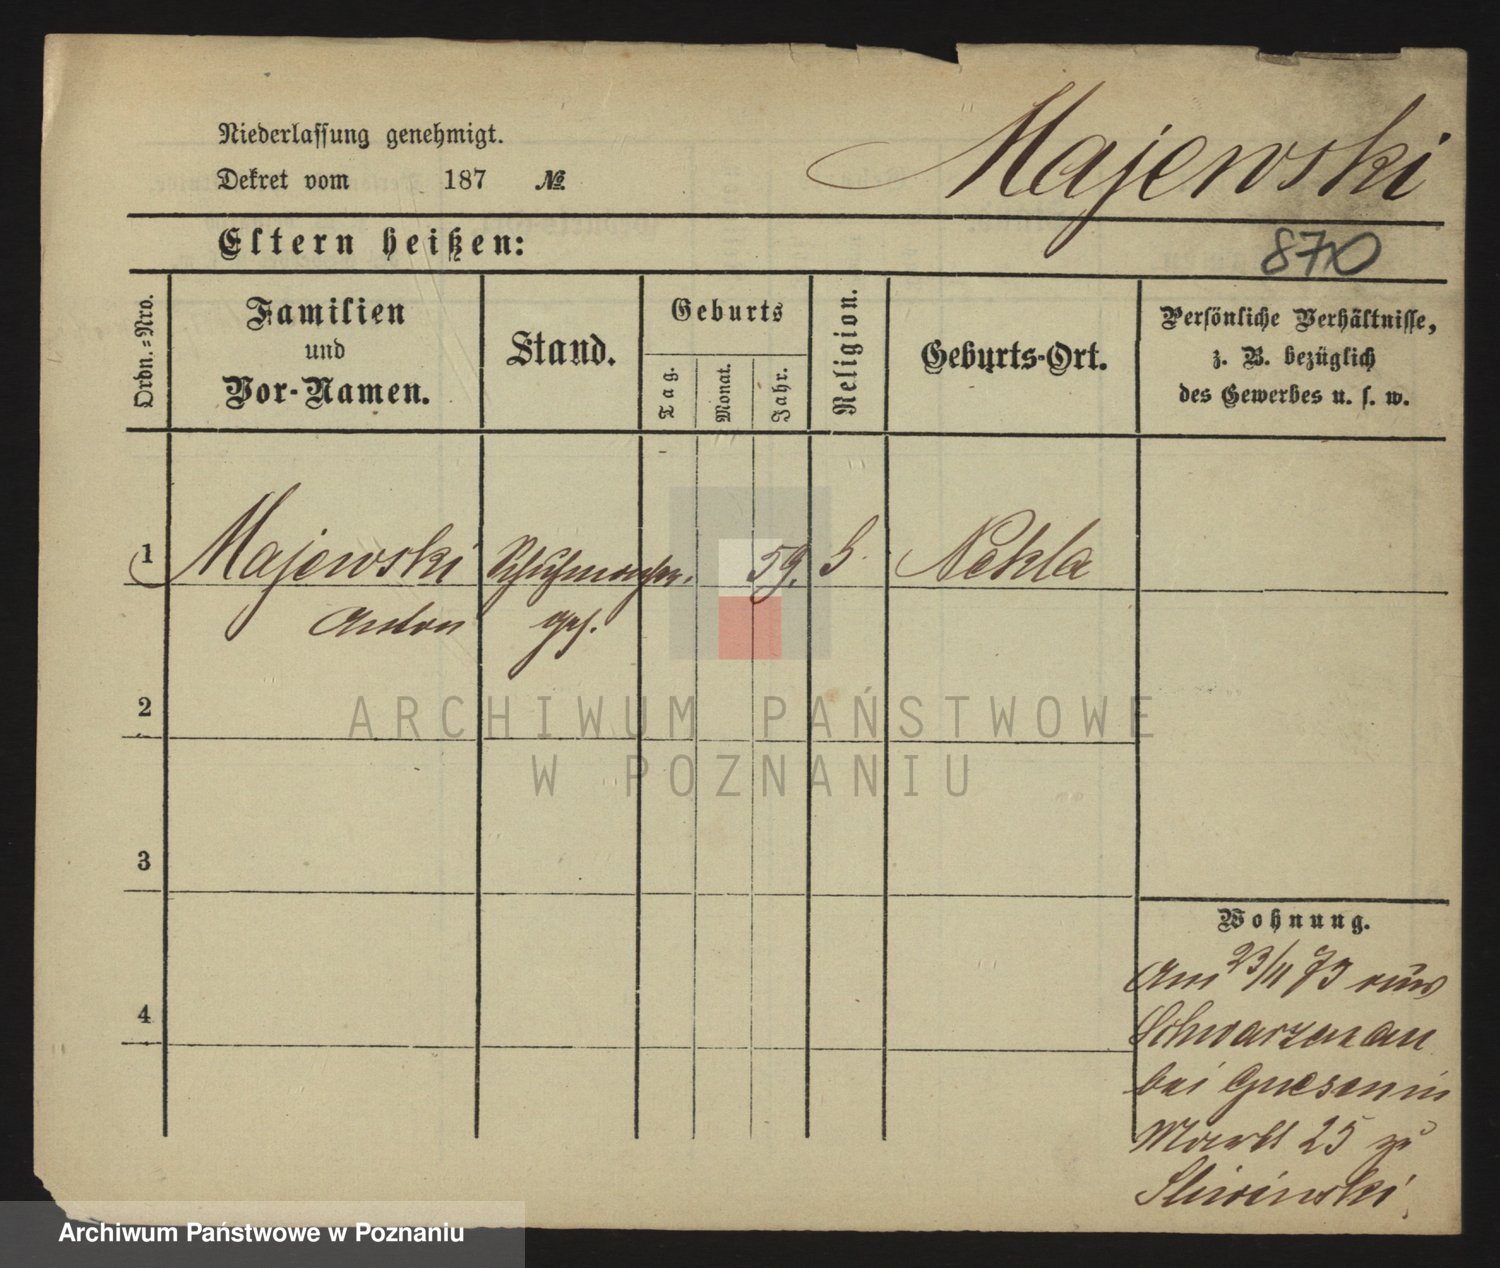 Niederlassung genehmigt.
Dekret vom 187 №
Majewski
Eltern heißen:
8710
Ordn.-Nro.
Familien
und
Vor-Namen.
Stand.
Geburts
Tag.
Monat.
Jahr.
Religion.
Geburts-Ort.
Persönliche Verhältnisse,
z. B. bezüglich
des Gewerbes u. s. w.
1 Majewski Schuhmacher. 59. Nekla
Anton ges.
2
ARCHIWUM PAŃSTWOWE
W POZNANIU
3
Wohnung.
Am 23/11 73 aus
Schwarzenau
bei Gnesen in
Markt 25 zu
Sliwinski.
4
Archiwum Państwowe w Poznaniu